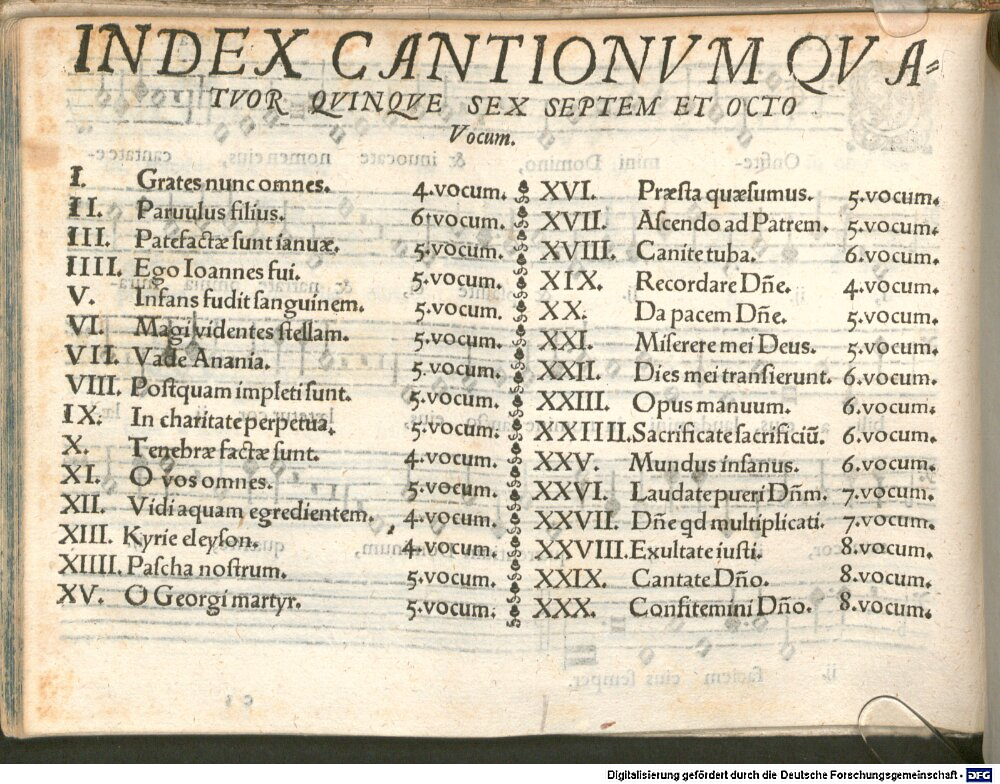 INDEX CANTIONVM QVA=
TVOR QVINQVE SEX SEPTEM ET OCTO
Vocum.
I. Grates nunc omnes. 4.vocum.
II. Paruulus filius. 6tvocum.
III. Patefactæ sunt ianuæ. 5.vocum.
IIII. Ego Ioannes fui. 5.vocum.
V. Infans fudit sanguinem. 5.vocum.
VI. Magi videntes stellam. 5.vocum.
VII. Vade Anania. 5.vocum.
VIII. Postquam impleti sunt. 5.vocum.
IX. In charitate perpetua. 5.vocum.
X. Tenebræ factæ sunt. 4.vocum.
XI. O vos omnes. 5.vocum.
XII. Vidi aquam egredientem. 4.vocum.
XIII. Kyrie eleyson. 4.vocum.
XIIII. Pascha nostrum. 5.vocum.
XV. O Georgi martyr. 5.vocum.
XVI. Præsta quæsumus. 5.vocum.
XVII. Ascendo ad Patrem. 5.vocum.
XVIII. Canite tuba. 6.vocum.
XIX. Recordare Dñe. 4.vocum.
XX. Da pacem Dñe. 5.vocum.
XXI. Miserere mei Deus. 5.vocum.
XXII. Dies mei transierunt. 6.vocum.
XXIII. Opus manuum. 6.vocum.
XXIIII. Sacrificate sacrificiū. 6.vocum.
XXV. Mundus insanus. 6.vocum.
XXVI. Laudate pueri Dñm. 7.vocum.
XXVII. Dñe qd multiplicati. 7.vocum.
XXVIII. Exultate iusti. 8.vocum.
XXIX. Cantate Dño. 8.vocum.
XXX. Confitemini Dño. 8.vocum.
Digitalisierung gefördert durch die Deutsche Forschungsgemeinschaft - DFG